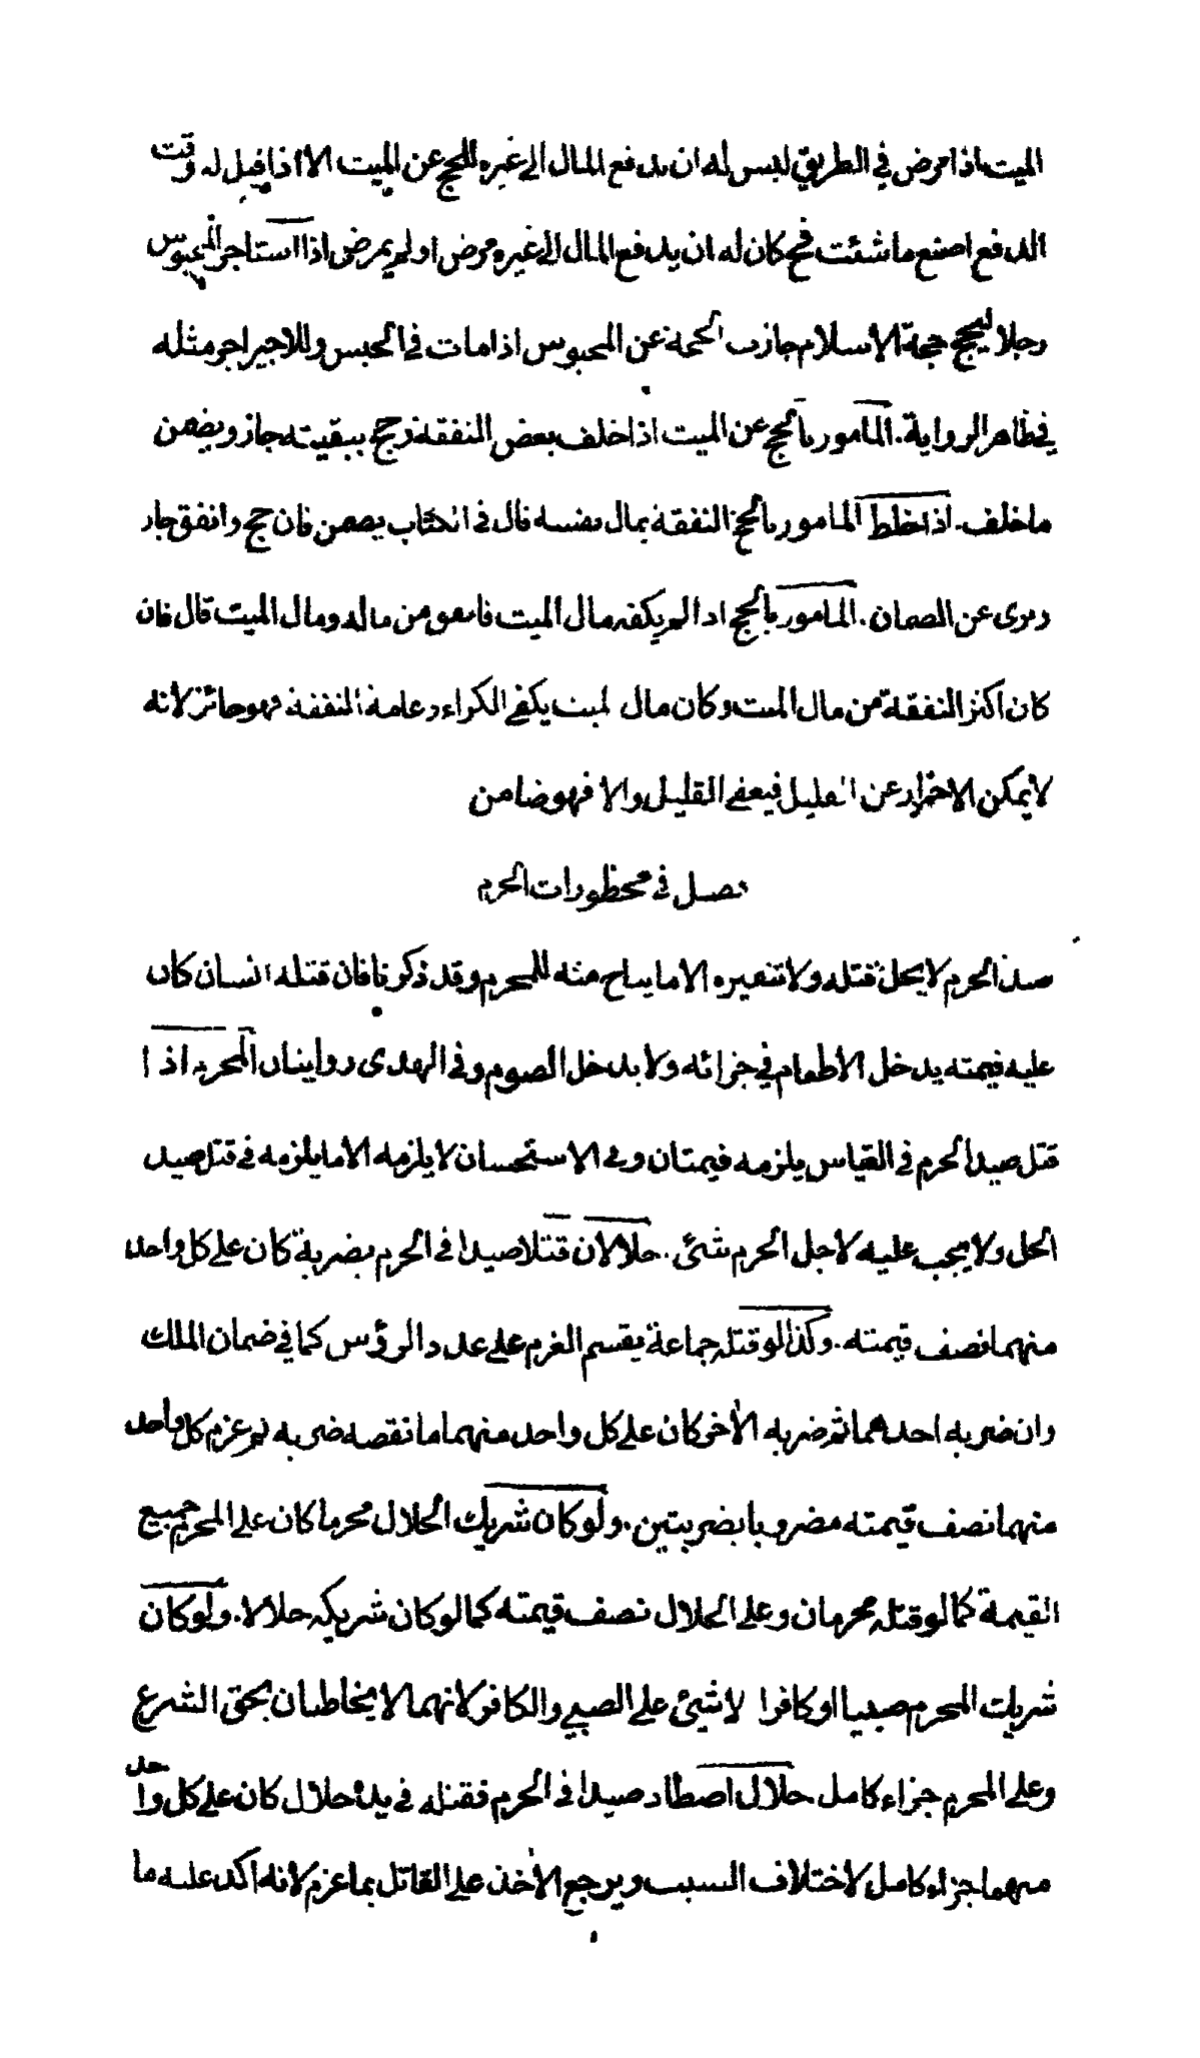 الميت اذا مرض في الطريق ليس له ان يدفع المال الى غيره للحج عن الميت الا اذا قيل له وقت
الدفع اصنع ما شئت فح كان له ان يدفع المال الى غيره مرض او لم يمرض اذا استاجر المحبوس
رجلا ليحج حجة الاسلام جازت الحجة عن المحبوس اذا مات في الحبس وللاجير اجر مثله
في ظاهر الرواية . المامور بالحج عن الميت اذا خلف بعض النفقة وحج ببقيته جاز ويضمن
ما خلف . اذا خلط المامور بالحج النفقة بمال نفسه قال في الكتاب يضمن فان حج وانفق جاز
وبرى عن الضمان . المامور بالحج اذا لم يكفه مال الميت فانفق من ماله ومال الميت قال فان
كان اكثر النفقة من مال الميت وكان مال الميت يكفي الكراء وعامة النفقة فهو جائز لانه
لا يمكن الاحتراز عن القليل فيعفى القليل والا فهو ضامن
فصل في محظورات الحرم
صيد الحرم لا يحل قتله ولا تنفيره الا ما يباح مثله للمحرم وقد ذكرنا فان قتله انسان كان
عليه قيمته يدخل الاطعام في جزائه ولا يدخل الصوم وفي الهدى روايتان المحرم اذا
قتل صيد الحرم في القياس يلزمه قيمتان وفي الاستحسان لا يلزمه الا ما يلزمه في قتل صيد
الحل ولا يجب عليه لاجل الحرم شئ . حلالان قتلا صيدا في الحرم بضربة كان على كل واحد
منهما نصف قيمته . وكذا لو قتله جماعة يقسم الغرم على عدد الرؤس كما في ضمان الملك
وان ضربه احدهما ثم ضربه الاخر كان على كل واحد منهما ما نقصه ضربه ثم غرم كل واحد
منهما نصف قيمته مضروبا بضربتين . ولو كان شريك الحلال محرما كان على المحرم جميع
القيمة كما لو قتله محرمان وعلى الحلال نصف قيمته كما لو كان شريكه حلالا . ولو كان
شريك المحرم صبيا او كافرا لا شئ على الصبي والكافر لانهما لا يخاطبان بحق الشرع
وعلى المحرم جزاء كامل . حلال اصطاد صيدا في الحرم فقتله في يده حلال كان على كل واحد
منهما جزاء كامل لاختلاف السبب ويرجع الاخذ على القاتل بما غرم لانه اكد عليه ما